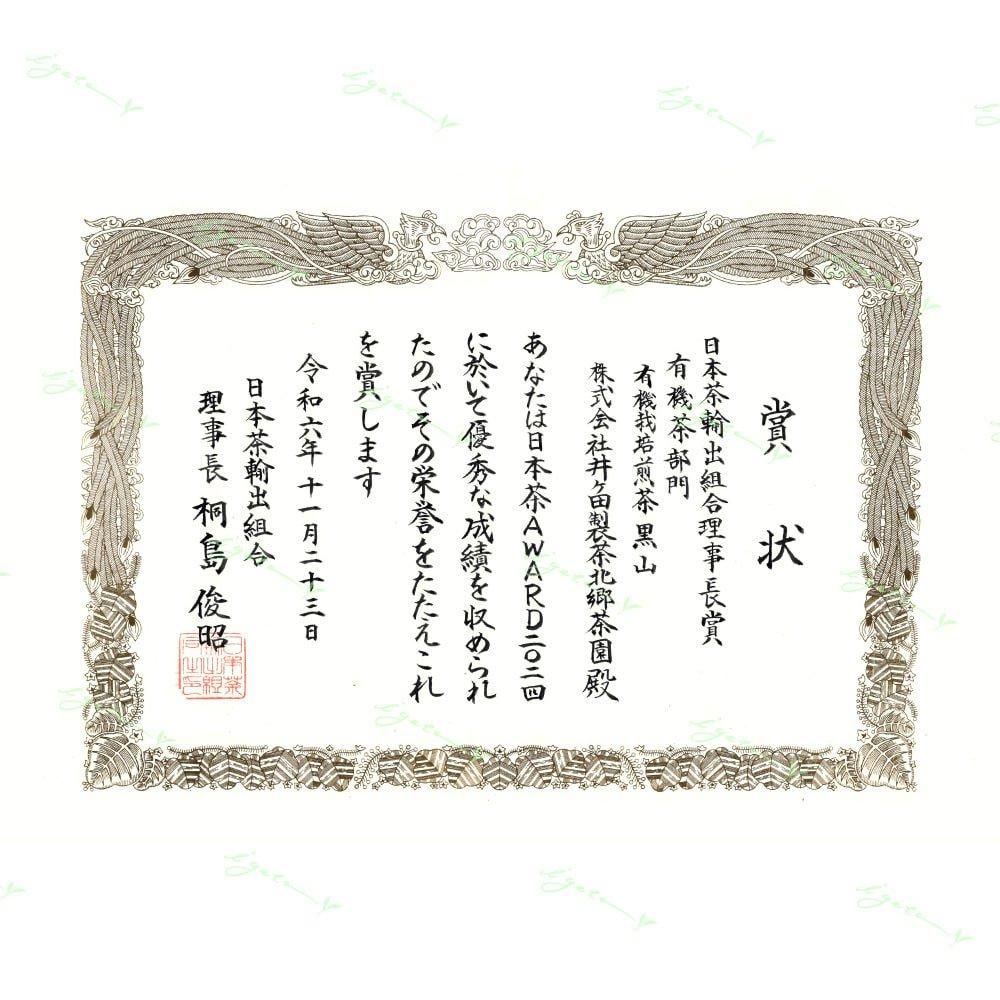 賞状
日本茶輸出組合理事長賞
有機茶部門
有機栽培煎茶 黒山
株式会社井ヶ田製茶北郷茶園殿
あなたは日本茶AWARD二〇二四
に於いて優秀な成績を収められ
たのでその栄誉をたたえこれ
を賞します
令和六年十一月二十三日
日本茶輸出組合
理事長 桐島 俊昭
igeta